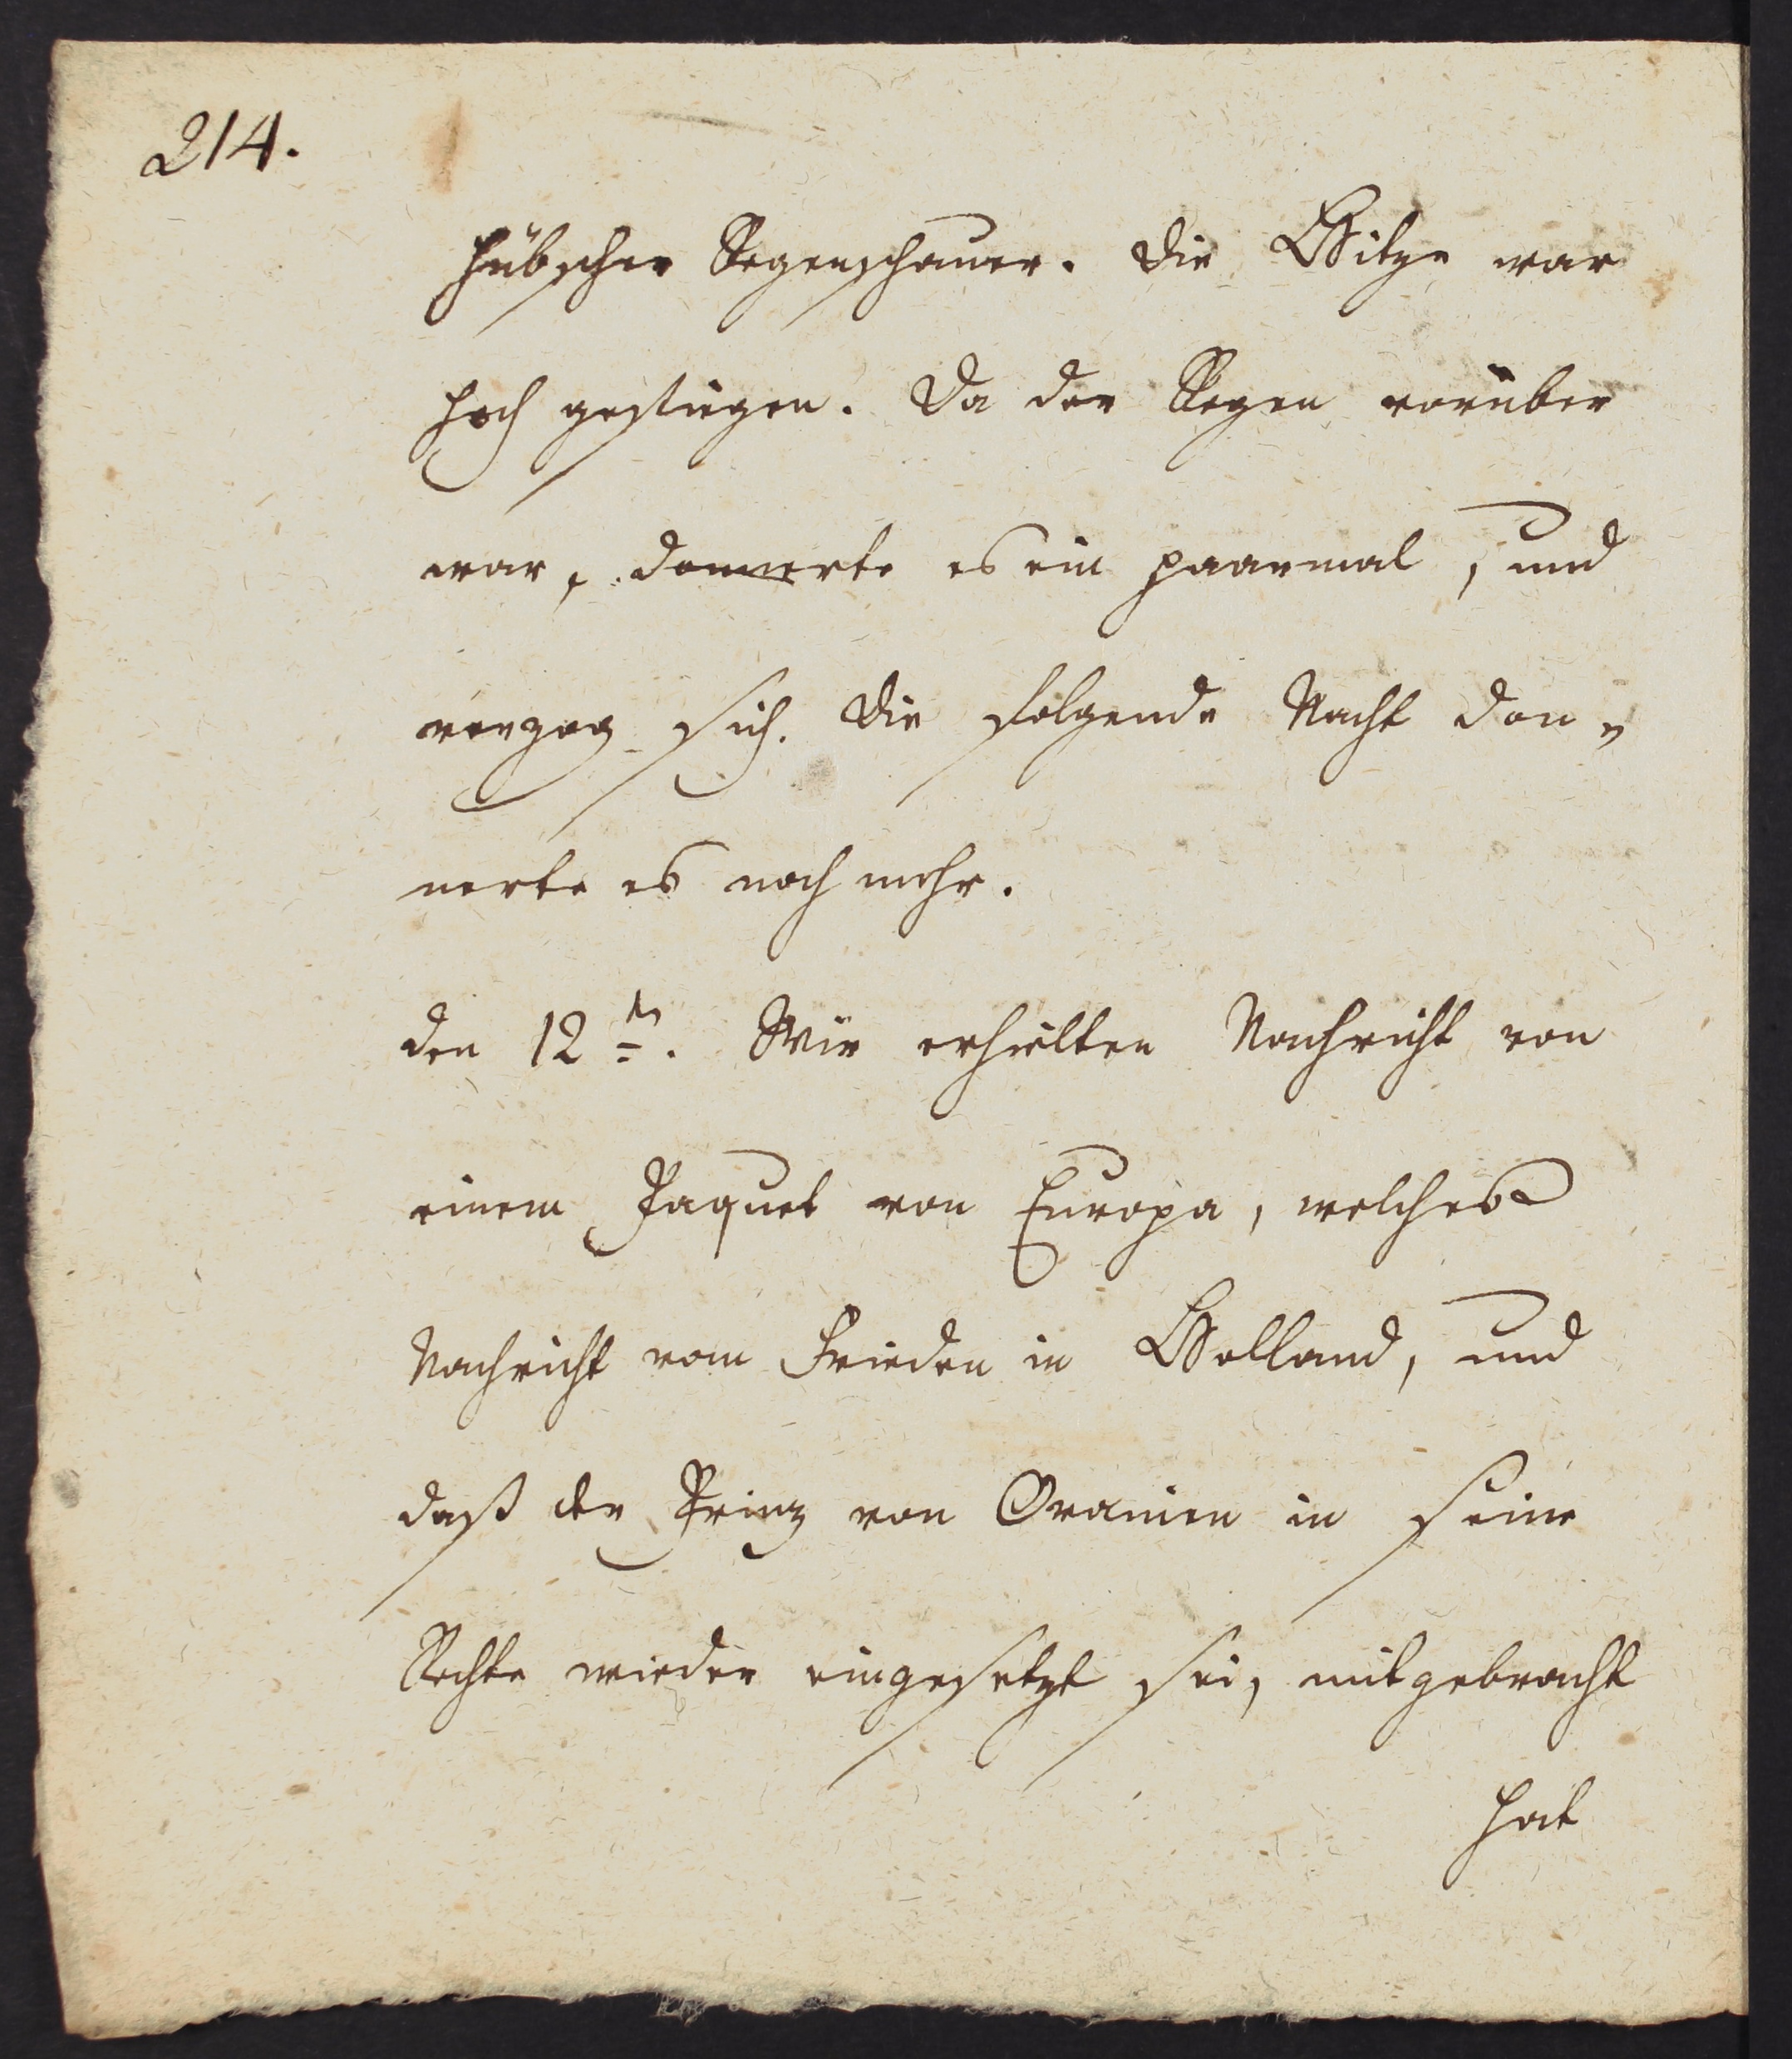 214.
hübscher Regenschauer. Die Hitze war
hoch gestiegen. Da der Regen vorüber
war, donnerte es ein paarmal, und
verzog sich. Die folgende Nacht don„
nerte es noch mehr.
den 12tn. Wir erhielten Nachricht von
einem Paquet von Europa, welches
Nachricht vom Frieden in Holland, und
daß der Prinz von Oranien in seine
Rechte wieder eingesetzt sei, mitgebracht
hat